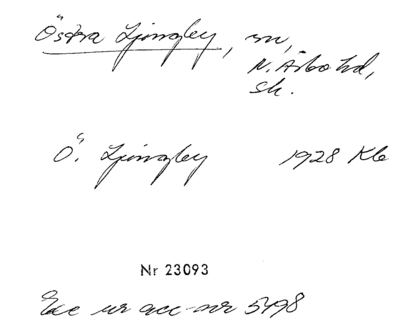 Östra Ljungby, sn,
N. Åsbo hd,
Sk.
Ö. Ljungby 1928 Kb
Nr 23093
Exc ur acc-nr 5498